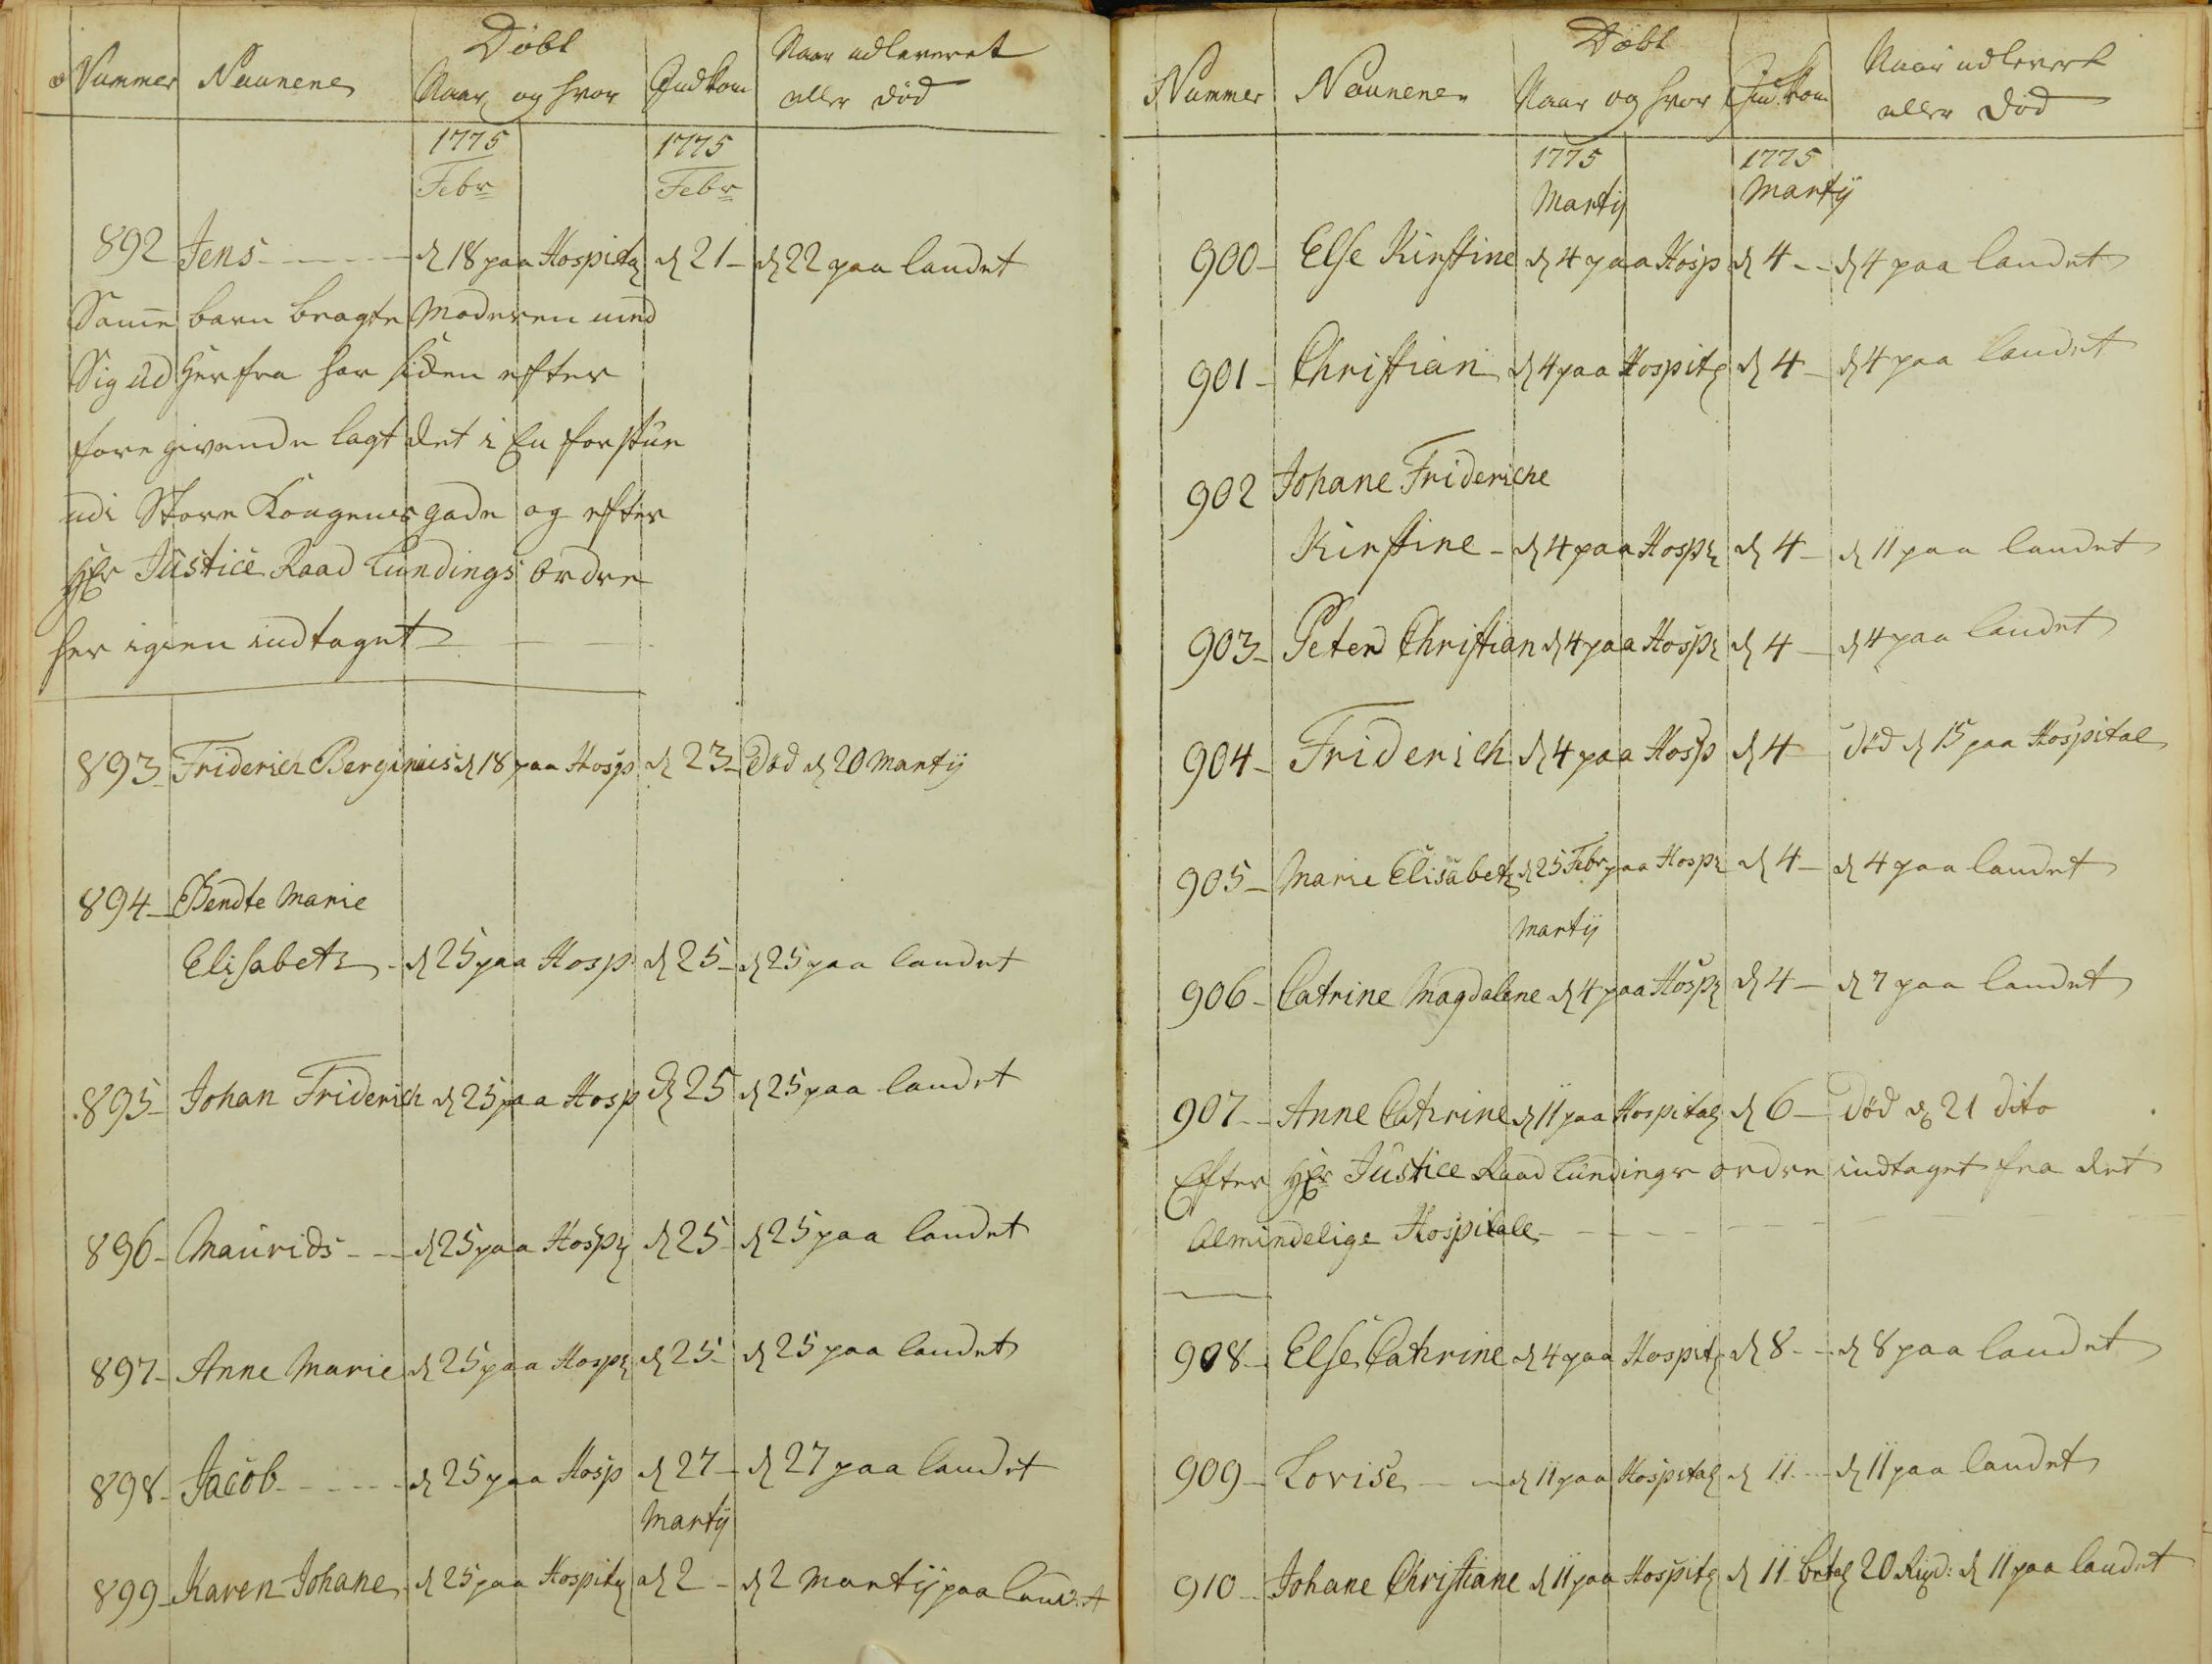 Nummer Naunene Døbt Naar og hvor Indkom Naar udleveret eller død
1775 1775
Febr Febr
892 Jens - - - - - d 18 paa Hospital d 21 - d 22 paa landet
Same barn bragte Moderen med
Sig ud herfra har siden efter
foregivende lagt det i En forstue
udi Store Kongensgade og efter
Hr Justice Raad Lundings Ordre
her igien indtaget
893 - Friderich Berginius d 18 paa Hosp d 23 - Død d 20 Martij
894 - Bendte Marie
Elisabeth - d 25 paa Hosp d 25 - d 25 paa landet
895 - Johan Friderich d 25 paa Hosp d 25 d 25 paa landet
896 - Maurids - - - d 25 paa Hosp d 25 - d 25 paa landet
897 - Anne Marie d 25 paa Hosp d 25 - d 25 paa landet
898 - Jacob - - - - - d 25 paa Hosp d 27 - d 27 paa landet
Martij
899 - Karen Johane d 25 paa Hospital d 2 - d 2 Martij paa landet
Nummer Naunene Døbt Naar og hvor Indkom Naar udlevert eller død
1775 1775
Martij Martij
900 - Else Kirstine d 4 paa Hosp d 4 - - d 4 paa landet
901 - Christian d 4 paa Hospital d 4 - d 4 paa landet
902 Johane Frideriche
Kirstine - d 4 paa Hosp d 4 - d 11 paa landet
903 - Peter Christian d 4 paa Hosp d 4 - d 4 paa landet
904 - Friderich d 4 paa Hosp d 4 død d 15 paa Hospital
905 - Marie Elisabeth d 25 Febr paa Hosp d 4 - d 4 paa landet
Martij
906 - Catrine Magdalene d 4 paa Hosp d 4 - d 7 paa landet
907 - - Anne Cathrine d 11 paa Hospital d 6 - Død d 21 dito
Efter Hr Justice Raad Lundings ordre indtaget fra det
Almindelige Hospitale - - - -
908 - Else Cathrine d 4 paa Hospital d 8 - - d 8 paa landet
909 - Lovise - - d 11 paa Hospital d 11 - - d 11 paa landet
910 - Johane Christiane d 11 paa Hospital d 11 betal 20 Rixd: d 11 paa landet